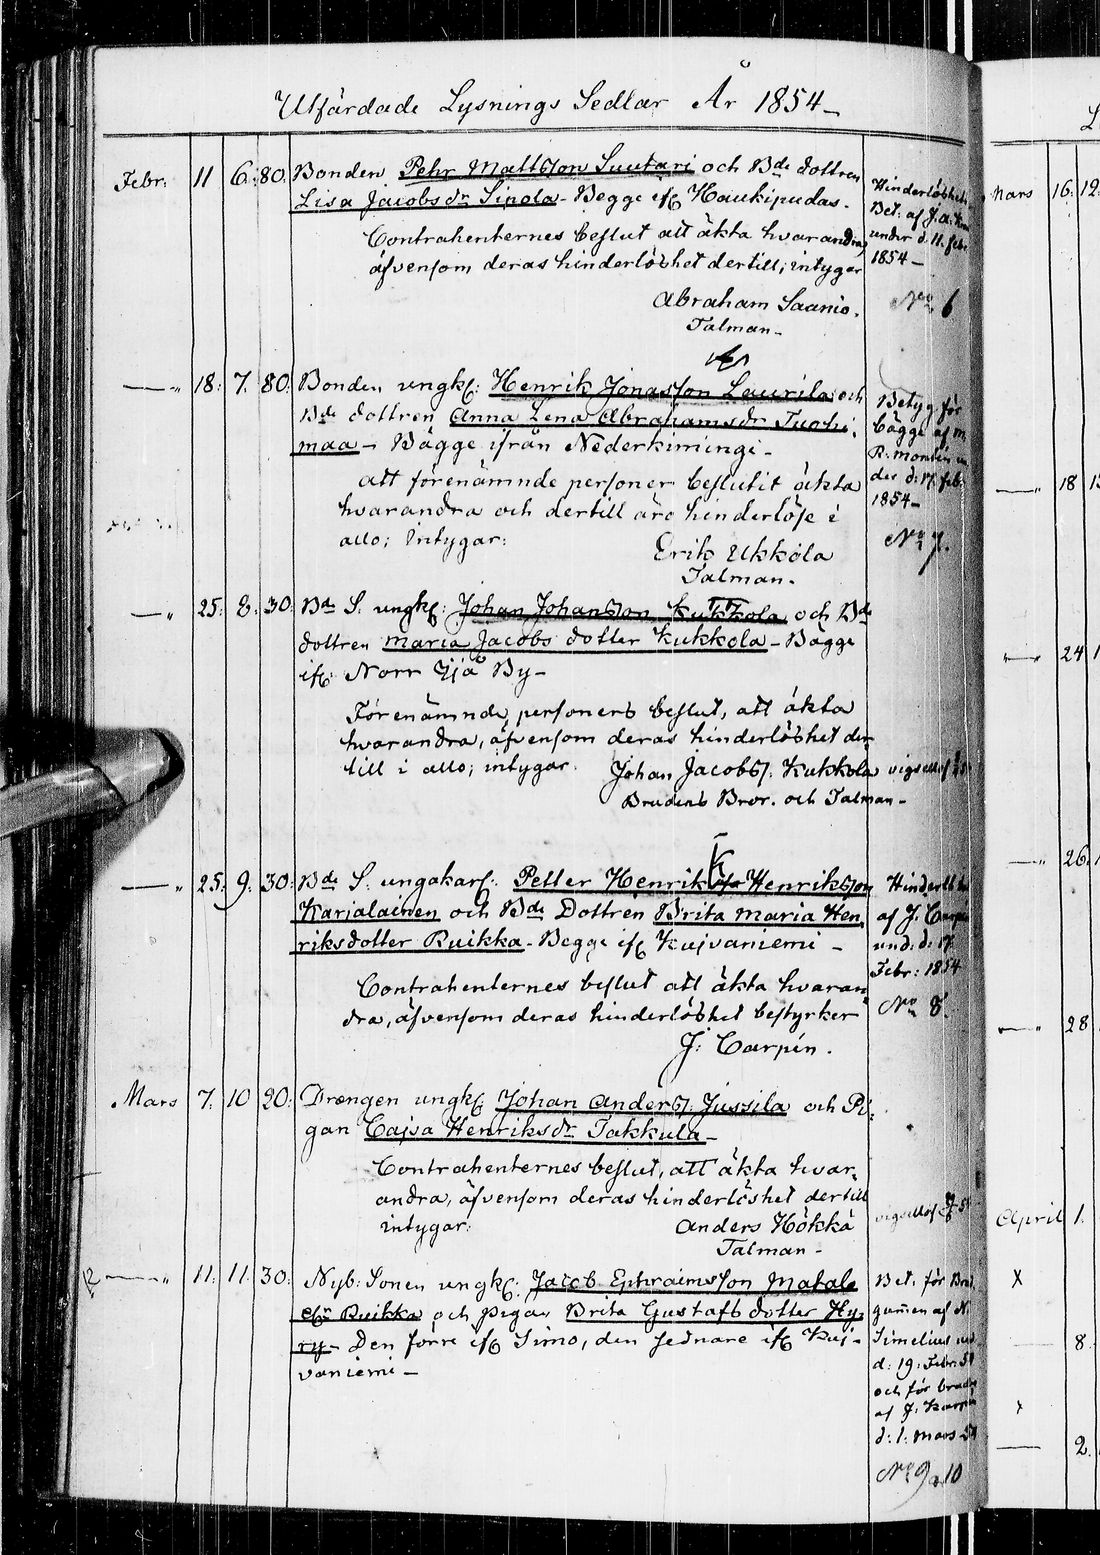 Utfärdade Lysnings Sedlar År 1854
Febr: 11 6. 80. Bonden Pehr Mattsson Suutari och Bde dottren
Lisa Jacobsdr Sipola - Begge ifr Haukipudas.
Contrahenternes beslut att äkta hvarandra,
äfvensom deras hinderlöshet dertill; intygar
Abraham Saanio.
Talman -
Hinderlöshets
Bet. af J. A.
under d. 11. febr.
1854 -
No 6
" 18. 7. 80. Bonden ungk: Henrik Jonasson Laurila och
Bde dottren Anna Lena Abrahamsdr Tuohi-
maa - Bägge ifrån Nederkiminge -
att förenämnde personer beslutit äkta
hvarandra och dertill äro hinderlöse i
allo; intygar:
Erik Ukkola
Talman -
Betyg för
bägge af
R. Montin un
der d. 17. feb:
1854 -
No 7.
" 25. 8. 30. Bde S. ungk: Johan Johansson Kukkola och Bde
dottren Maria Jacobs dotter Kukkola - Bägge
ifr: Norr Ijå By -
Förenämnde personers beslut, att äkta
hvarandra, äfvensom deras hinderlöshet der-
till i allo; intygar.
Johan Jacobss. Kukkola
Brudens Bror. och Talman -
" 25. 9. 30. Bde S. ungakarl: Petter Henrik Henriksson
Karjalainen och Bde Dottren Brita Maria Hen-
riksdotter Ruikka - Begge ifr Kuivaniemi -
Contrahenternes beslut att äkta hvaran-
dra, äfvensom deras hinderlöshet bestyrker
J: Carpén.
af J. Carpén
und: d: 17.
Febr: 1854
No 8.
Mars 7. 10 20. Drengen ungk: Johan Anderss. Jussila och Pi-
gan Cajsa Henriksdr Takkula -
Contrahenternes beslut, att äkta hvar-
andra, äfvensom deras hinderlöshet dertill
intygar:
Anders Hökkä
Talman -
" 11. 11. 30. Nyb: Sonen ungk: Jacob Ephraimsson Matale
Ruikka och pigan Brita Gustafs dotter Hy-
ry - Den förre ifr Simo, den sednare ifr Kuj-
vaniemi -
Bet. för Brud
gumen af N.
Simelius und
d: 19. Febr. 54
och för bruden
af J. Karpén
d: 1. Mars 54
No 9 a 10
Mars 16. 12
" 18 13
" 24
" 26.
" 28
April 1.
X
8.
x
2.